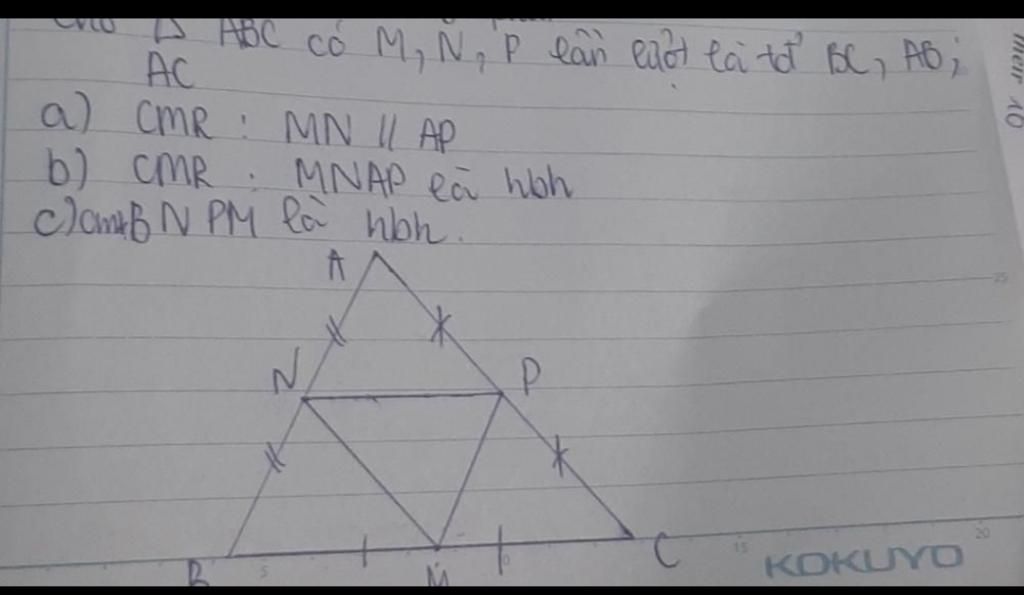 Cho Δ ABC có M, N, P lần lượt là tđ BC, AB;
AC
a) CMR : MN // AP
b) CMR : MNAP là hbh
c) cmr BNPM là hbh.
A
N
P
B
M
C
5
15
20
25
KOKUYO